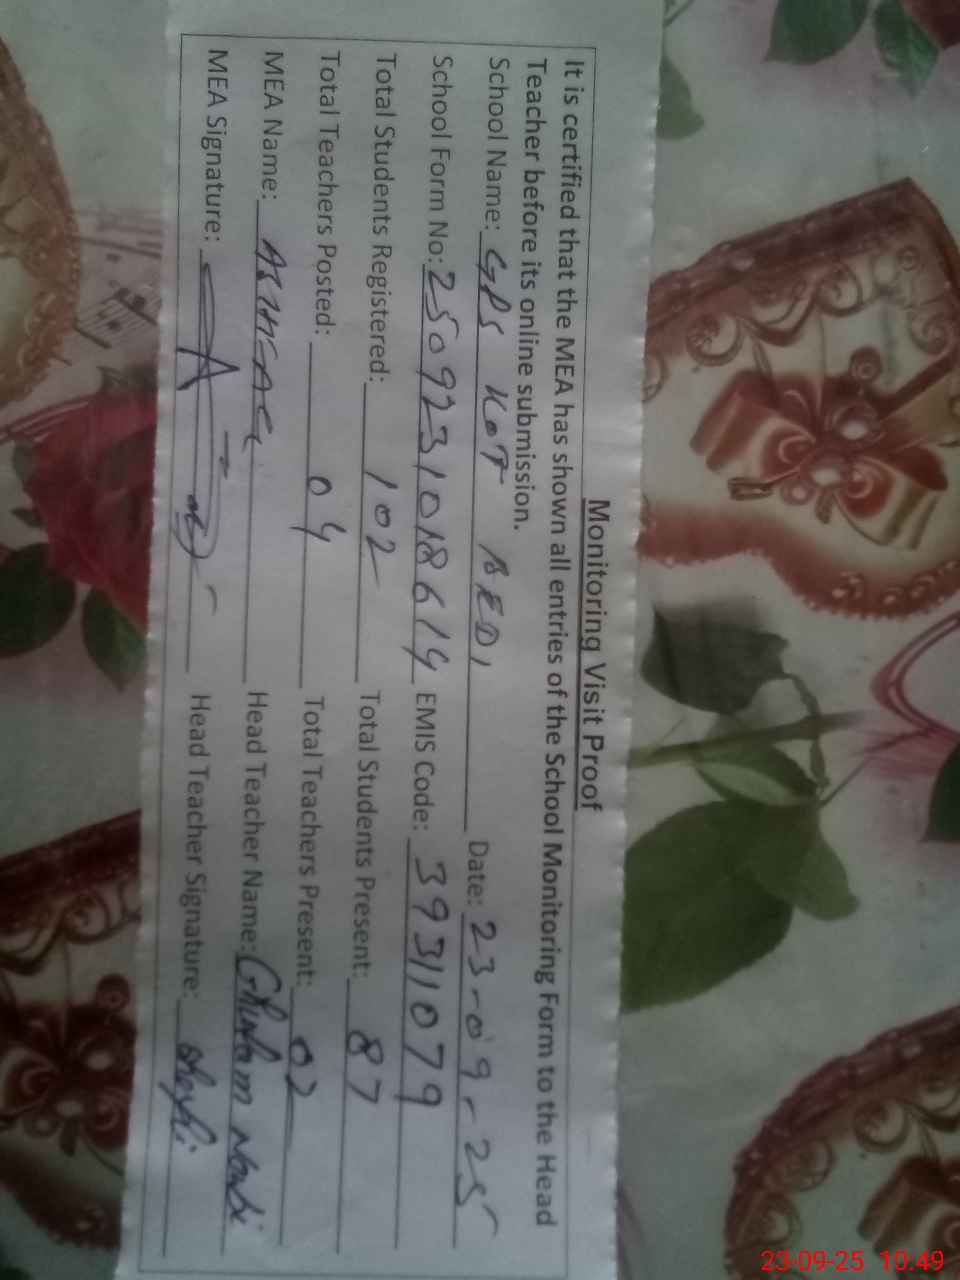 Monitoring Visit Proof
It is certified that the MEA has shown all entries of the School Monitoring Form to the Head
Teacher before its online submission.
School Name: GPS KOT BEDI Date: 23-09-25
School Form No: 2509231018614 EMIS Code: 39311079
Total Students Registered: 102 Total Students Present: 87
Total Teachers Posted: 04 Total Teachers Present: 02
MEA Name: Head Teacher Name: Ghulam Nabi
MEA Signature: Head Teacher Signature:
23-09-25 10:49